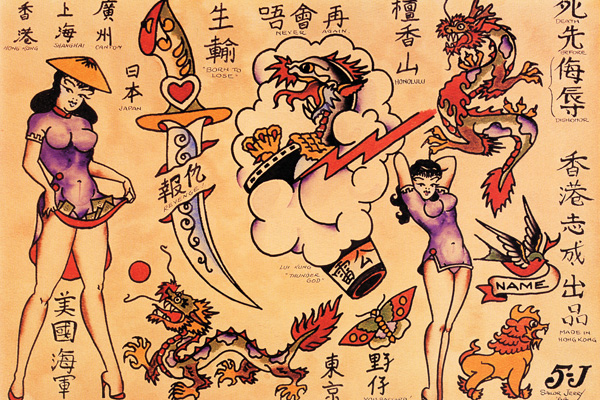 香港
HONG-KONG
上海
SHANGHAI
廣州
CANTON
日本
JAPAN
生輸
"BORN TO LOSE"
唔會再
NEVER AGAIN
檀香山
HONOLULU
死
DEATH
先
BEFORE
侮辱
DISHONOR
報仇
REVENGE
雷公
LUI KUNG
"THUNDER GOD"
香港志成出品
MADE IN
HONG KONG
NAME
美國海軍
東京
野仔
SJ
SAILOR JERRY